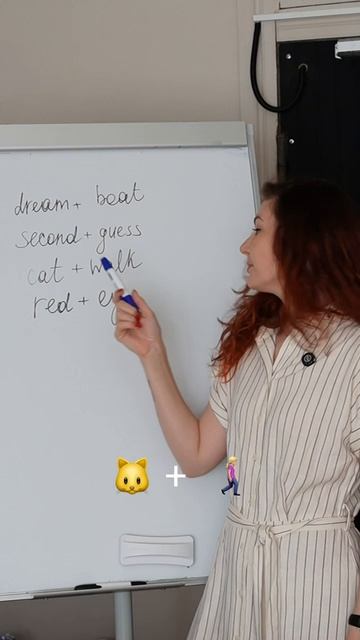 dream + boat
second + guess
cat + walk
red +